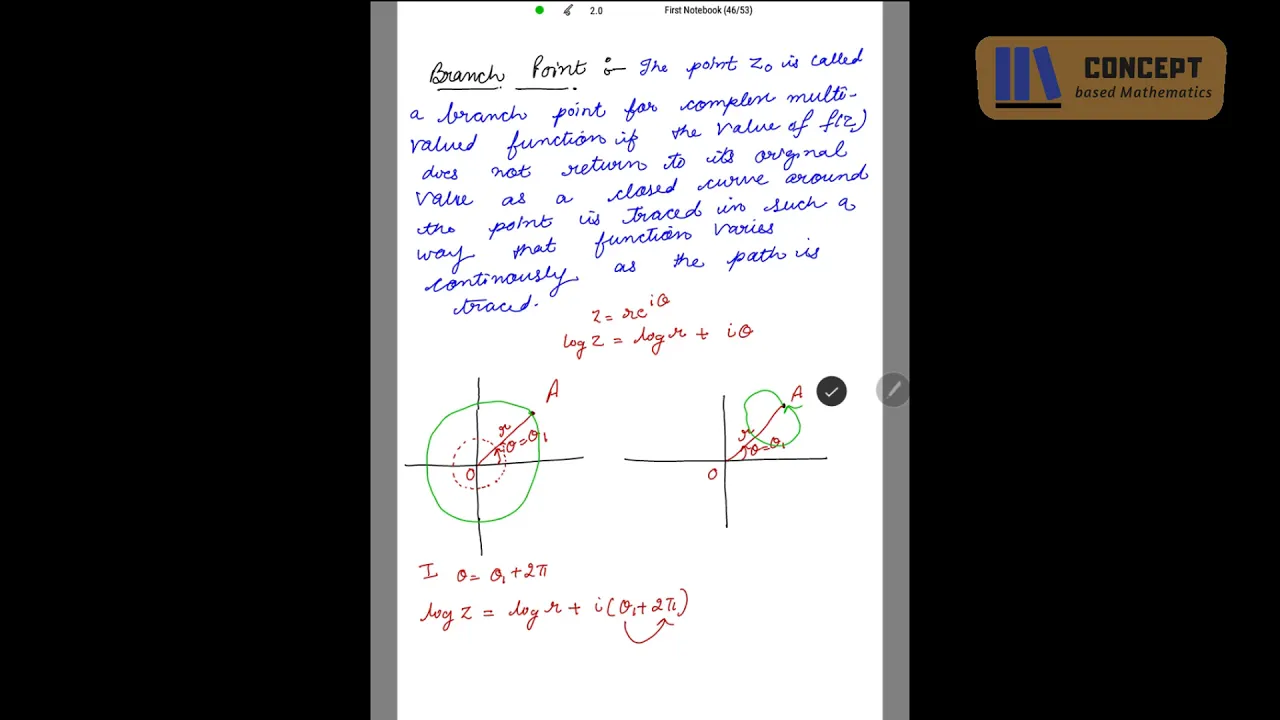 2.0 First Notebook (46/53)
CONCEPT
based Mathematics
Branch Point :- The point z₀ is called
a branch point for complex multi-
valued function if the value of f(z)
does not return to its original
value as a closed curve around
the point is traced in such a
way that function varies
continously as the path is
traced.
z = re^{iθ}
log z = log r + iθ
A
r
θ=θ₁
O
A
r
θ=θ₁
O
I θ = θ₁ + 2π
log z = log r + i(θ₁+2π)